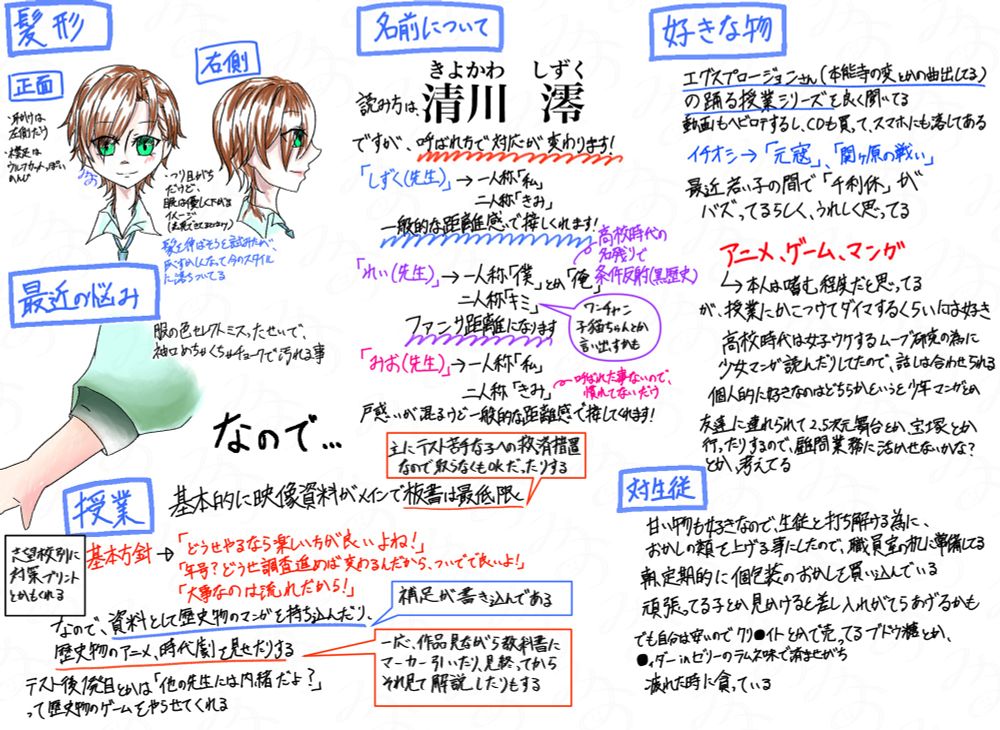 髪形
正面
右側
・分けは
左側だう
・襟足は
ウルフカットっぽい
のんび
・つり目がち
だけど、
眼は優しく下がる
イメージ
髪を伸ばそうと試みたが、
めんどくさくなって今のスタイル
に落ちついてる
最近の悩み
服の色セレクトミスったせいで、
袖口めちゃくちゃチョークで汚れる事
名前について
きよかわ しずく
読み方は、清川 澪
ですが、呼ばれ方で対応が変わります!
「しずく(先生)」→一人称「私」
二人称「きみ」
一般的な距離感で接しくれます!
「れい(先生)」→一人称「僕」とか「俺」
二人称「キミ」
ファンサ距離になります
高校時代の
名残りで
条件反射(黒歴史)
ワンチャン
子猫ちゃんとか
言い出すかも
「みお(先生)」→一人称「私」
二人称「きみ」
呼ばれた事ないので、
慣れてないだう
戸惑いが混るけど一般的な距離感で接してくれます!
なので…
主にテスト苦手な子への救済措置
なので取らなくもOKだったりする
授業
基本的に映像資料がメインで板書は最低限と
志望校別に
対策プリント
とかもくれる
基本方針→「どうせやるなら楽しい方が良いよね!」
「年号?どうせ調査進めば変わるんだから、ついでで良いよ!」
「大事なのは流れだから!」
なので、資料として歴史物のマンガを持ち込んだり、
歴史物のアニメ、時代劇を見せたりする
補足が書き込んである
一応、作品見ながら教科書に
マーカー引いたり、見終ってから
それ見て解説したりもする
テスト後1発目とかは「他の先生には内緒だよ?」
って歴史物のゲームをやらせてくれる
好きな物
エグスプロージョンさん(本能寺の変とかの曲出してる)
の踊る授業シリーズを良く聞いてる
動画もヘビロテするし、CDも買って、スマホにも落してある
イチオシ→「元寇」、「関ヶ原の戦い」
最近若い子の間で「千利休」が
バズってるらしく、うれしく思ってる
アニメ、ゲーム、マンガ
↳本人は嗜む程度だと思ってる
が、授業にかこつけてダイマするくらいには好き
高校時代は女子ウケするムーブ研究の為に
少女マンガ読んだりしてたので、話しは合わせられる
個人的に好きなのはどちらかというと少年マンガとか
友達に連れられて2.5次元舞台とか、宝塚とか
行ったりするので、顧問業務に活かせないかな?
とか、考えてる
対生徒
甘い物も好きなので、生徒と打ち解ける為に、
おかしの類を上げる事にしたので、職員室の机に準備してる
朝定期的に個包装のおかしを買い込んでいる
頑張ってる子とか見かけると差し入れがてらあげるかも
でも自分は安いので クリ●イトとかで売ってるブドウ糖とか、
●ィダーinゼリーのラムネ味で済ませがち
疲れた時に貪っている